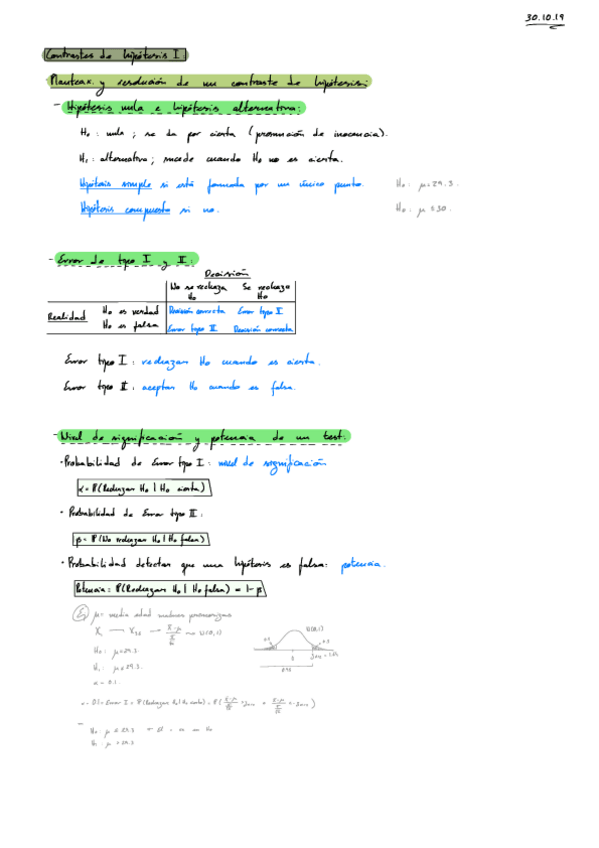 30.10.19
Contrastes de hipótesis I:
Planteam. y resolución de un contraste de hipótesis:
- Hipótesis nula e hipótesis alternativa:
H₀: nula; se da por cierta (presunción de inocencia).
H₁: alternativa; sucede cuando H₀ no es cierta.
Hipótesis simple si está formada por un único punto. H₀: μ=29.3.
Hipótesis compuesta si no. H₀: μ≤30.
- Error de tipo I y II:
Decisión
No se rechaza H₀ Se rechaza H₀
Realidad H₀ es verdad Decisión correcta Error tipo I
H₀ es falsa Error tipo II Decisión correcta
Error tipo I: rechazar H₀ cuando es cierta.
Error tipo II: aceptar H₀ cuando es falsa.
- Nivel de significación y potencia de un test:
· Probabilidad de Error tipo I: nivel de significación
α = P(Rechazar H₀ | H₀ cierta)
· Probabilidad de Error tipo II:
β = P(No rechazar H₀ | H₀ falsa)
· Probabilidad detectar que una hipótesis es falsa: potencia.
Potencia: P(Rechazar H₀ | H₀ falsa) = 1-β
Ej μ = media edad madres primerizas
N(0,1)
H₀: μ=29.3.
H₁: μ≠29.3.
α = 0.1